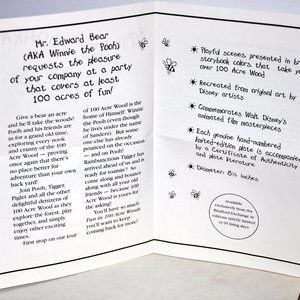 Mr. Edward Bear
(AKA Winnie the Pooh)
requests the pleasure
of your company at a party
that covers at least
100 acres of fun!
Give a bear an acre
and he'll take the woods!
Pooh and his friends are
in for a grand old time,
exploring every nook
and cranny of the 100
Acre Wood — proving
once again that there's
no place better for
adventure than your own
back yard!
Join Pooh, Tigger,
Piglet and all the other
delightful denizens of
100 Acre Wood as they
explore the forest, play
together, and simply
enjoy each other's
company.
First stop on our tour
of 100 Acre Wood is the
home of Himself: Winnie
the Pooh (often known
under the name
of Sanders). But some-
one else has already
pounced on the occasion
— and on Pooh!
Rambunctious Tigger has
arrived ahead of us and is
ready for roamin'! So
come along and bounce
along with all your old
friends — because 100
Acre Wood is yours for
the asking!
You'll have so much
Fun in 100 Acre Wood
you'll want to keep
coming back for more!
Playful scenes, presented in br
storybook colors that take y
over 100 Acre Wood
Recreated from original art by
Disney artists
Commemorates Walt Disney's
animated film masterpieces
Each genuine hand-numbered
limited-edition plate is accompanie
by a Certificate of Authenticity
and plate literature
Diameter: 8¼ inches
Available
exclusively from the
Bradford Exchange in
editions strictly limited
to 95 firing days